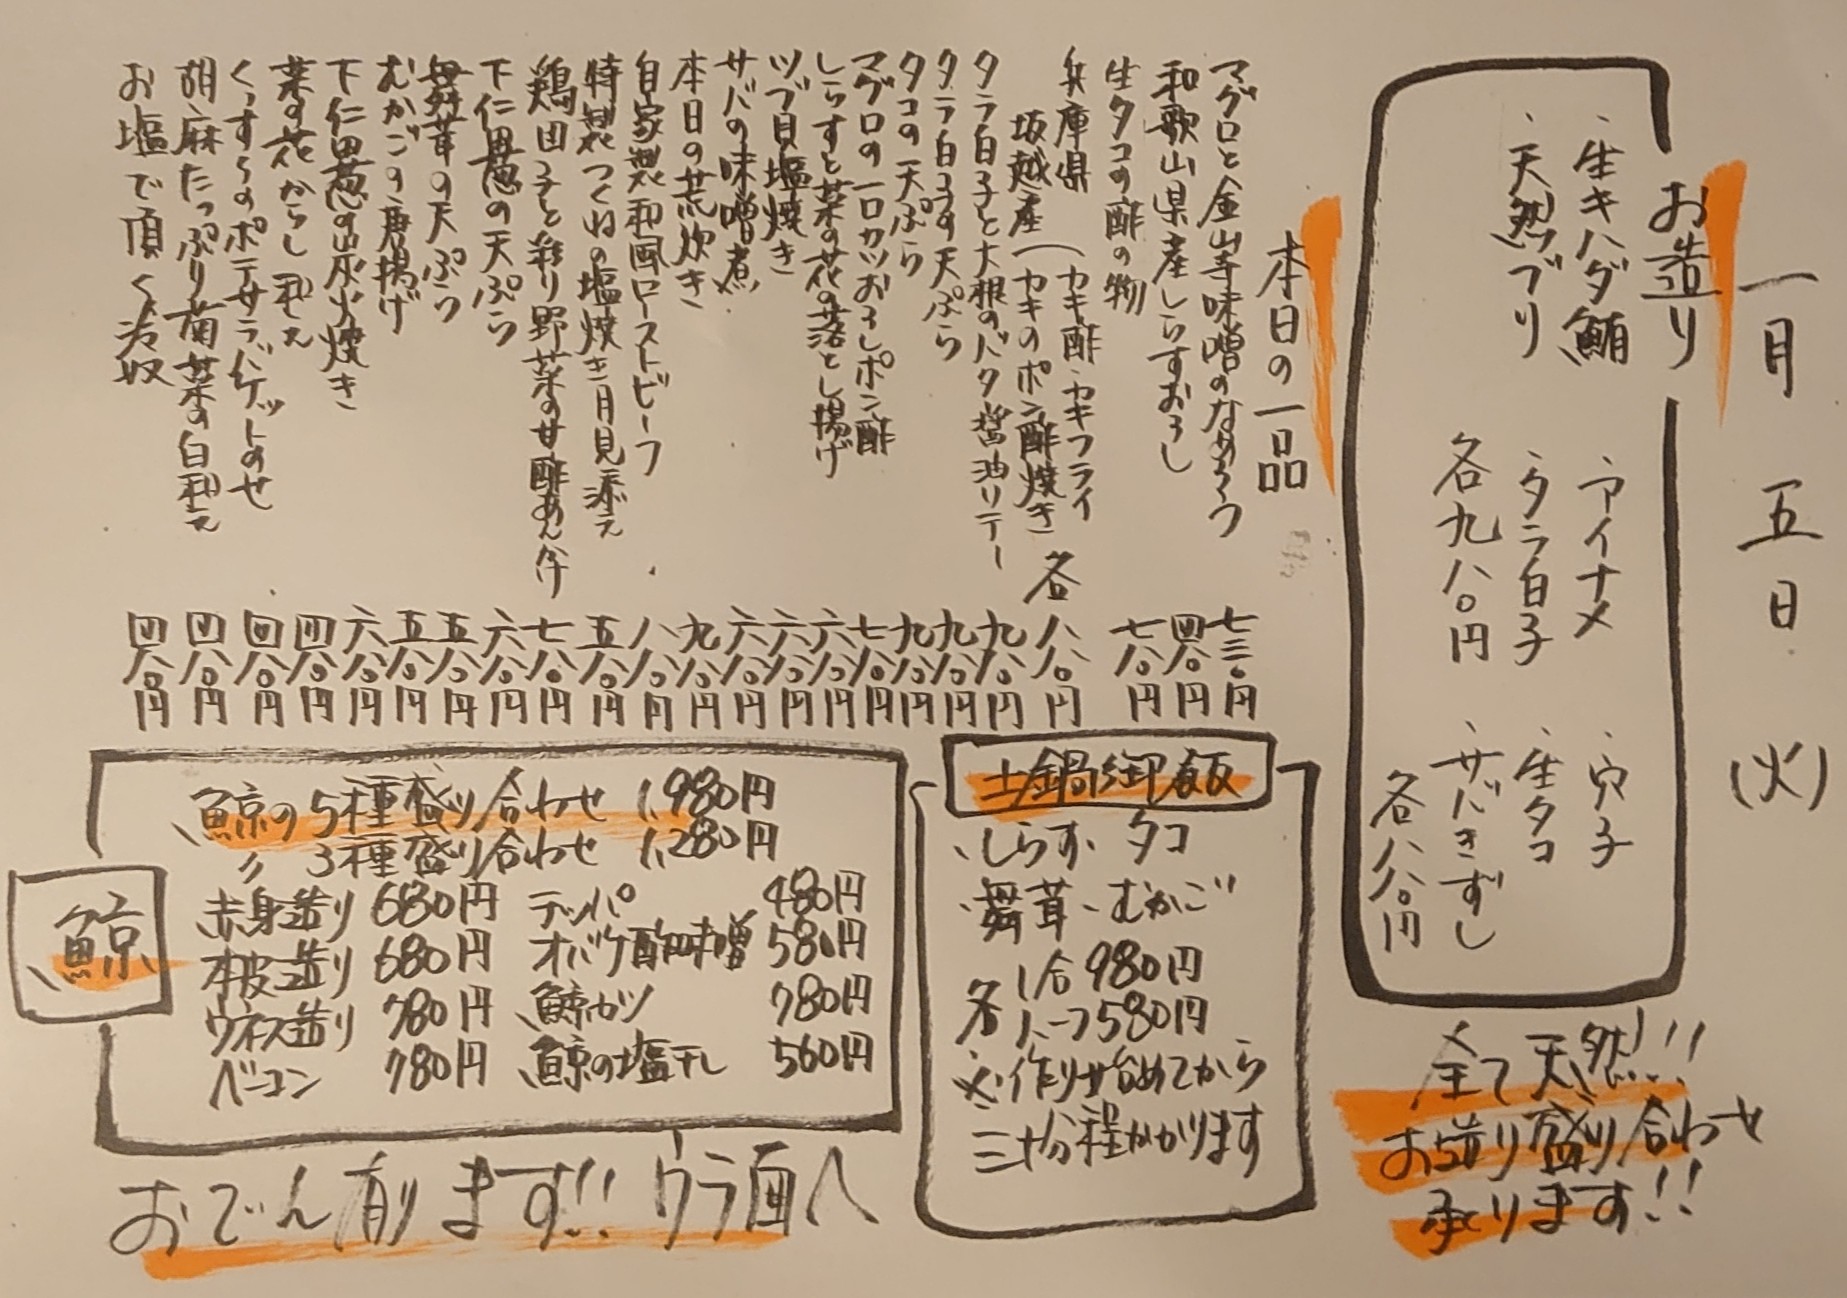 一月五日(火)
お造り
・生キハダ鮪
・天然ブリ
・アイナメ
・タラ白子
各九八〇円
・穴子
・生タコ
・サバきずし
各八八〇円
全て天然!!!
お造り盛り合わせ
承ります!!
本日の一品
マグロと金山寺味噌のなめろう 七三〇円
和歌山県産しらすおろし 四八〇円
生タコの酢の物 七八〇円
兵庫県 坂越産 (カキ酢・カキフライ
カキのポン酢焼き 各八八〇円
タラ白子と大根のバター醤油ソテー 九八〇円
タラ白子の天ぷら 九八〇円
タコの天ぷら 九八〇円
マグロの一口カツおろしポン酢 七八〇円
しらすと菜の花の落とし揚げ 六八〇円
ツブ貝塩焼き 六八〇円
サバの味噌煮 六八〇円
本日の荒炊き 九八〇円
自家製和風ローストビーフ 八八〇円
特製つくねの塩焼き月見添え 五八〇円
鶏団子と彩り野菜の甘酢あん仕 七八〇円
下仁田葱の天ぷら 六八〇円
舞茸の天ぷら 五八〇円
むかごの唐揚げ 五八〇円
下仁田葱の炭火焼き 六八〇円
菜の花からし和え 四八〇円
くんすらのポテサラバケットのせ 四八〇円
胡麻たっぷり菊菜の白和え 四八〇円
お塩で頂く冷奴 四八〇円
土鍋御飯
・しらす・タコ
・舞茸・むかご
各1合980円
ハーフ580円
※作り始めてから
三十分程かかります
鯨
鯨の5種盛り合わせ 1,980円
〃 3種盛り合わせ 1,280円
赤身造り 680円 テッパ 480円
本皮造り 680円 オバケ酢味噌 580円
ウネス造り 780円 鯨カツ 780円
ベーコン 780円 鯨の塩干し 560円
おでん有ります!!! ウラ面へ